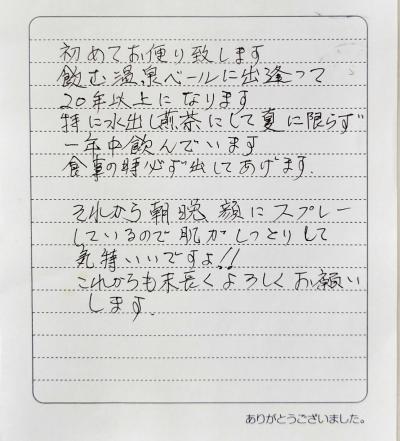 初めてお便り致します
飲む温泉ベールに出逢って
20年以上になります
特に水出し煎茶にして夏に限らず
一年中飲んでいます
食事の時必ず出してあげます.
それから朝晩 顔に スプレー
しているので 肌がしっとりして
気持いいですよ!!
これからも末長くよろしくお願い
します.
ありがとうございました。